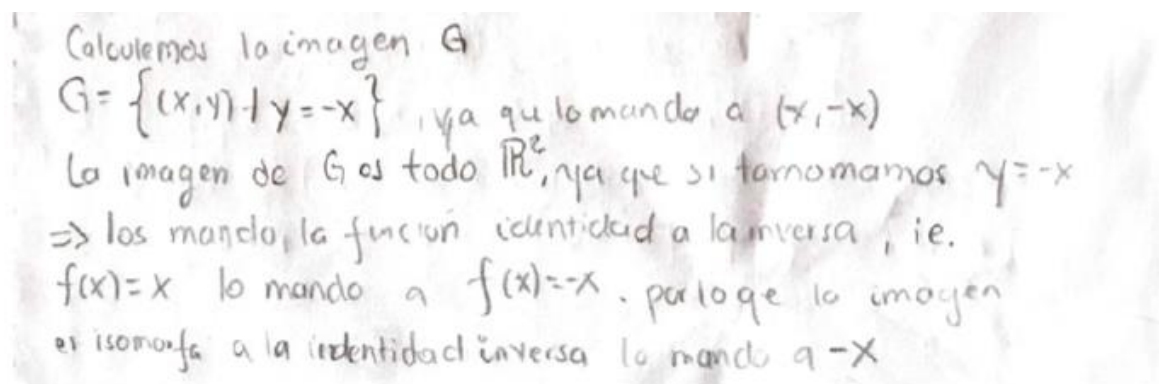 Calculemos la imagen G
G = {(x,y) | y = -x}, ya qu lo manda a (x,-x)
La imagen de G es todo ℝ², ya que si tomamos y = -x
=> los mando, la función identidad a la inversa, ie.
f(x) = x lo mando a f(x) = -x. por lo qe la imagen
es isomorfa a la identidad inversa lo mando a -x